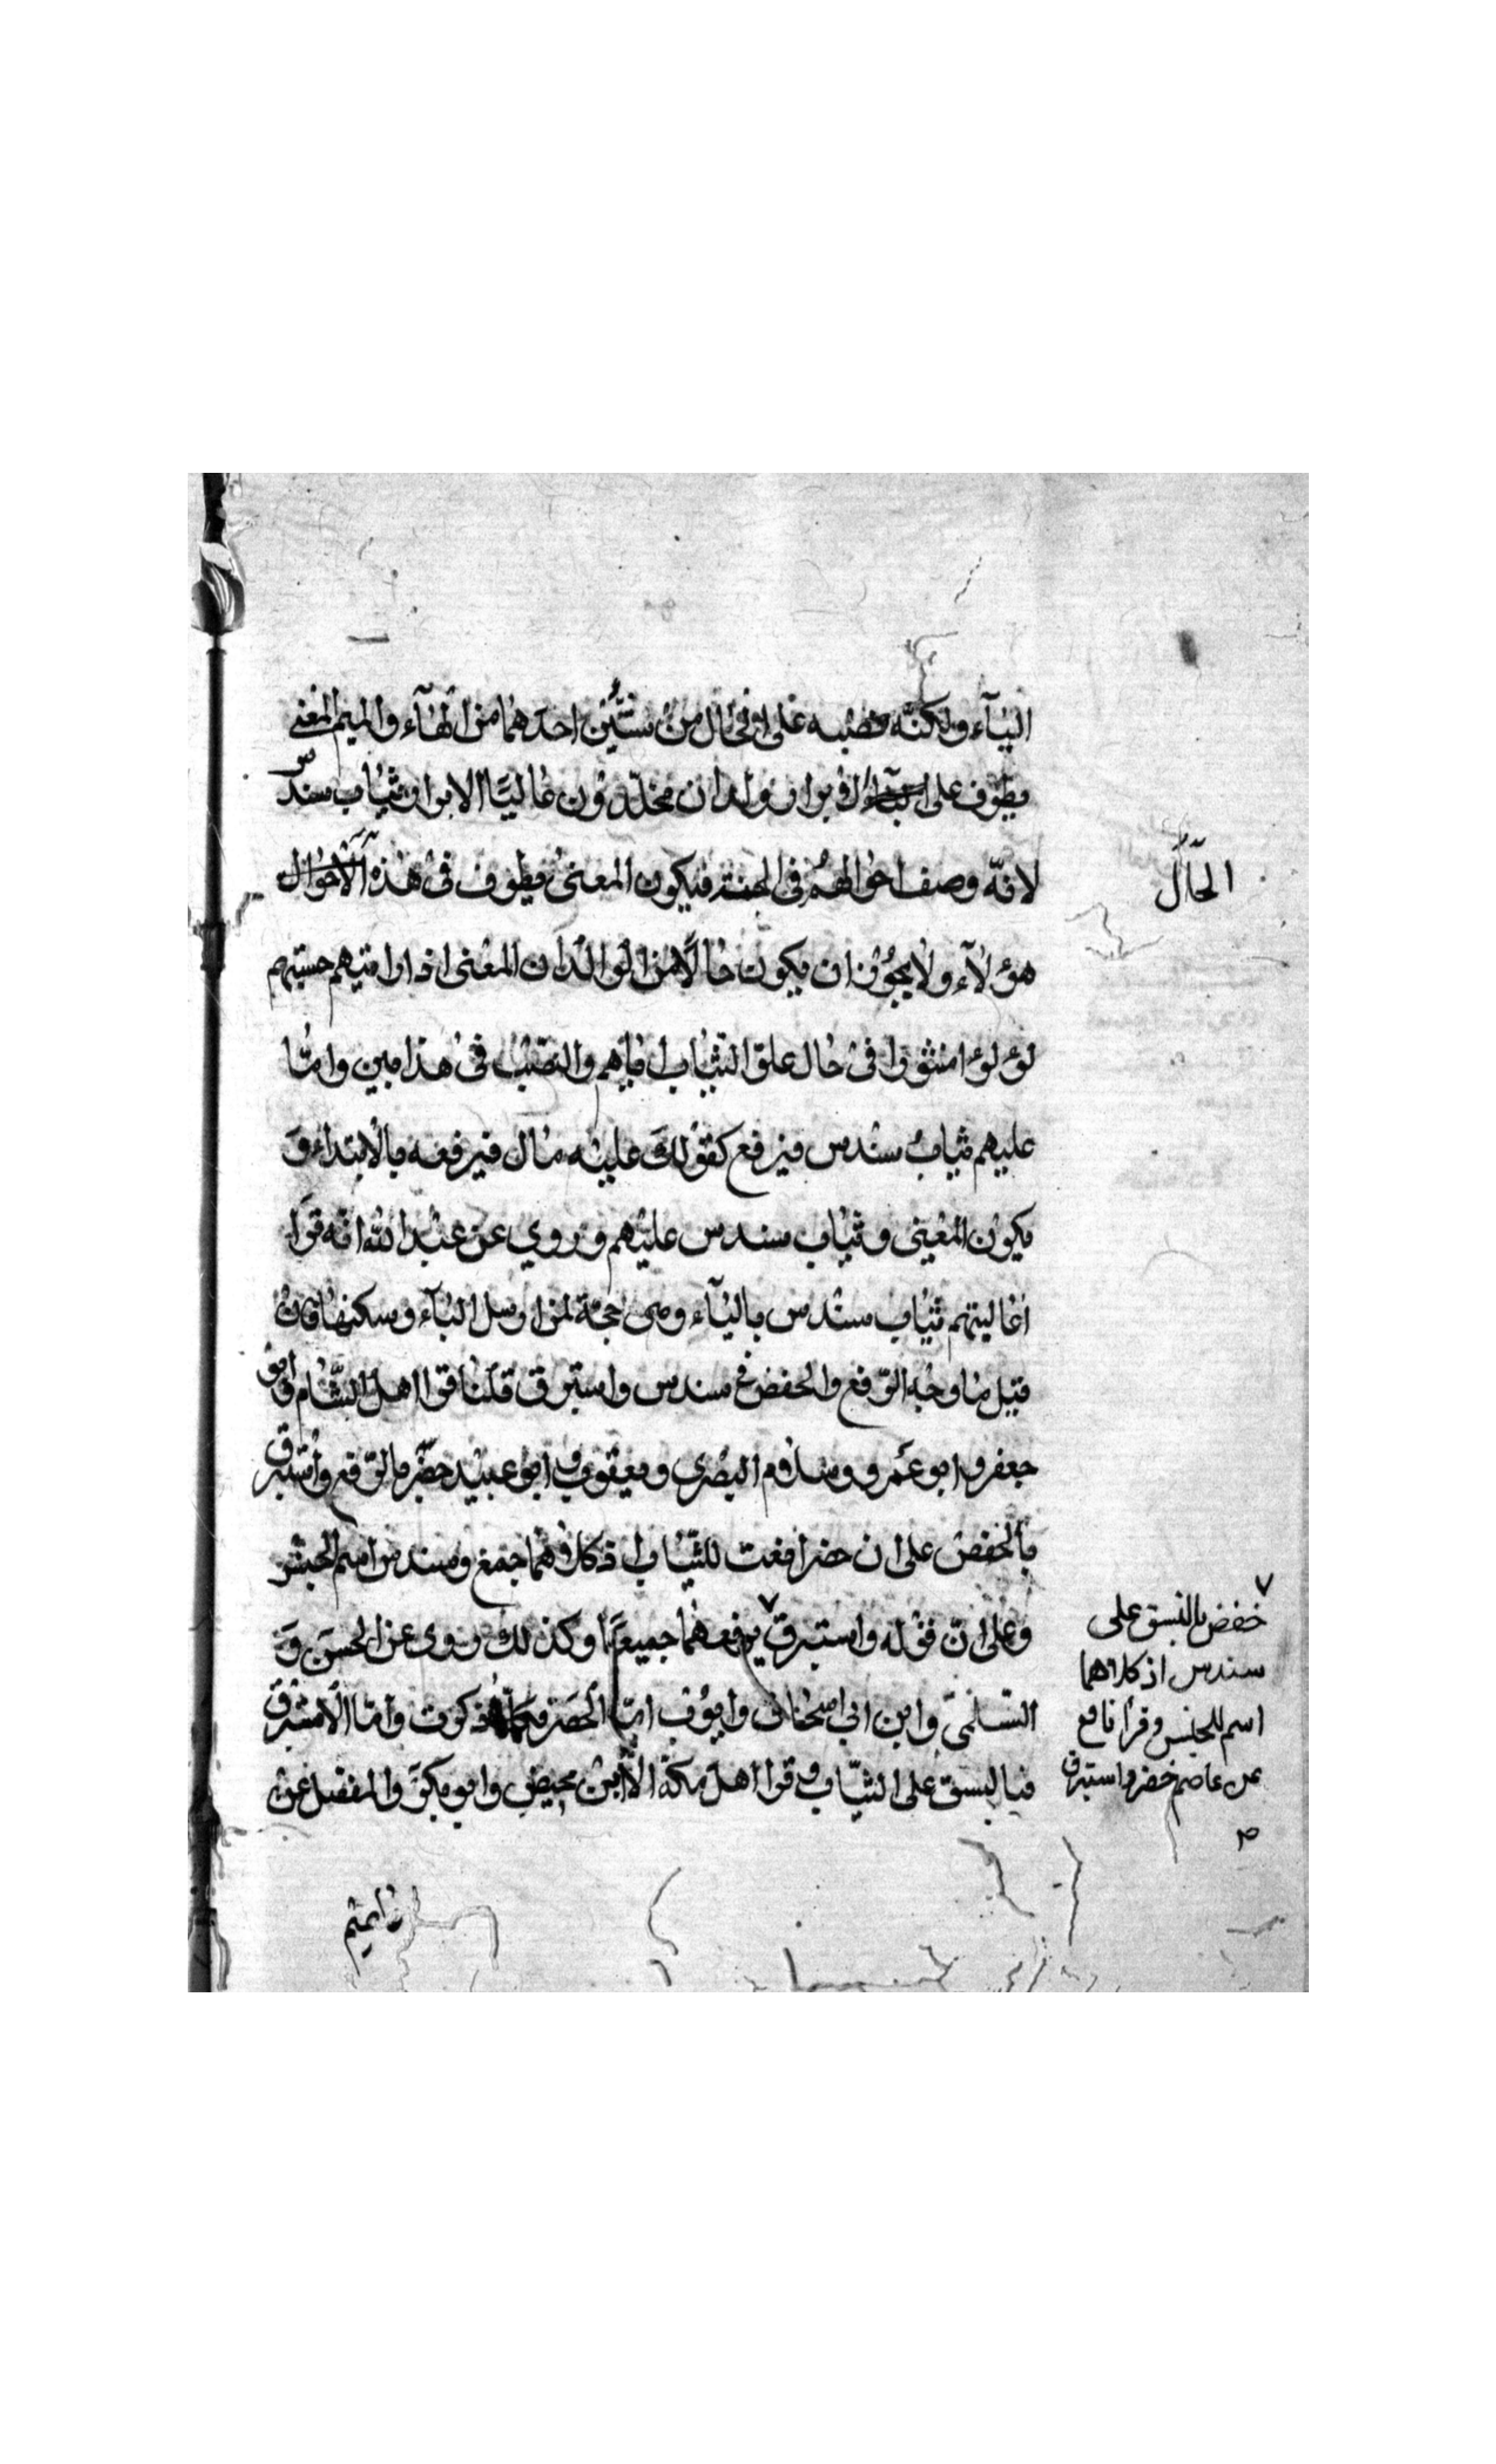 اليآء ولكنّه نصبه على الحال من شيئين احدهما من الهآء والميم المعنى
يطوف على الابرار ولدان مخلّدون عاليًا الابرار ثياب سندس
لانّه وصف احوالهم فى الجنة فيكون المعنى يطوف فى هذه الاحوال
هؤلآء ولا يجوز ان يكون حالًا من الولدان المعنى اذا رايتهم حسبتهم
لؤلؤا منثورا فى حال علوّ الثياب اياهم والنصب فى هذا بين وامّا
عليهم ثياب سندس فيرفع كقولك عليه مال فيرفعه بالابتداء و
يكون المعنى وثياب سندس عليهم وروي عن عبد الله انه قرا
عاليتهم ثياب سندس باليآء وهى حجة لمن ارسل اليآء وسكنها فان
قيل ما وجه الرّفع والخفض فى سندس واستبرق قلنا قرا اهل الشّام وابو
جعفر وابو عمرو وسلام البصري ويعقوب وابو عبيد خضر بالرّفع واستبرق
بالخفض على ان خضرا نعت للثّياب اذ كلاهما جمع وسندس اسم الجنس
وعلى انّ قوله واستبرق يرفعهما جميعًا وكذلك روى عن الحسن و
السّلمى وابن ابي اسحاق وايوب امّا الخضر فكما ذكرت وامّا الاستبرق
فبالنسق على الثّياب وقرا اهل مكة الّا ابن محيصن وابو بكر والمفضل عن
عاصم
الحال
خفض بالنسق على
سندس اذ كلاهما
اسم للجنس وقرأ نافع
عن عاصم خضر واستبرق